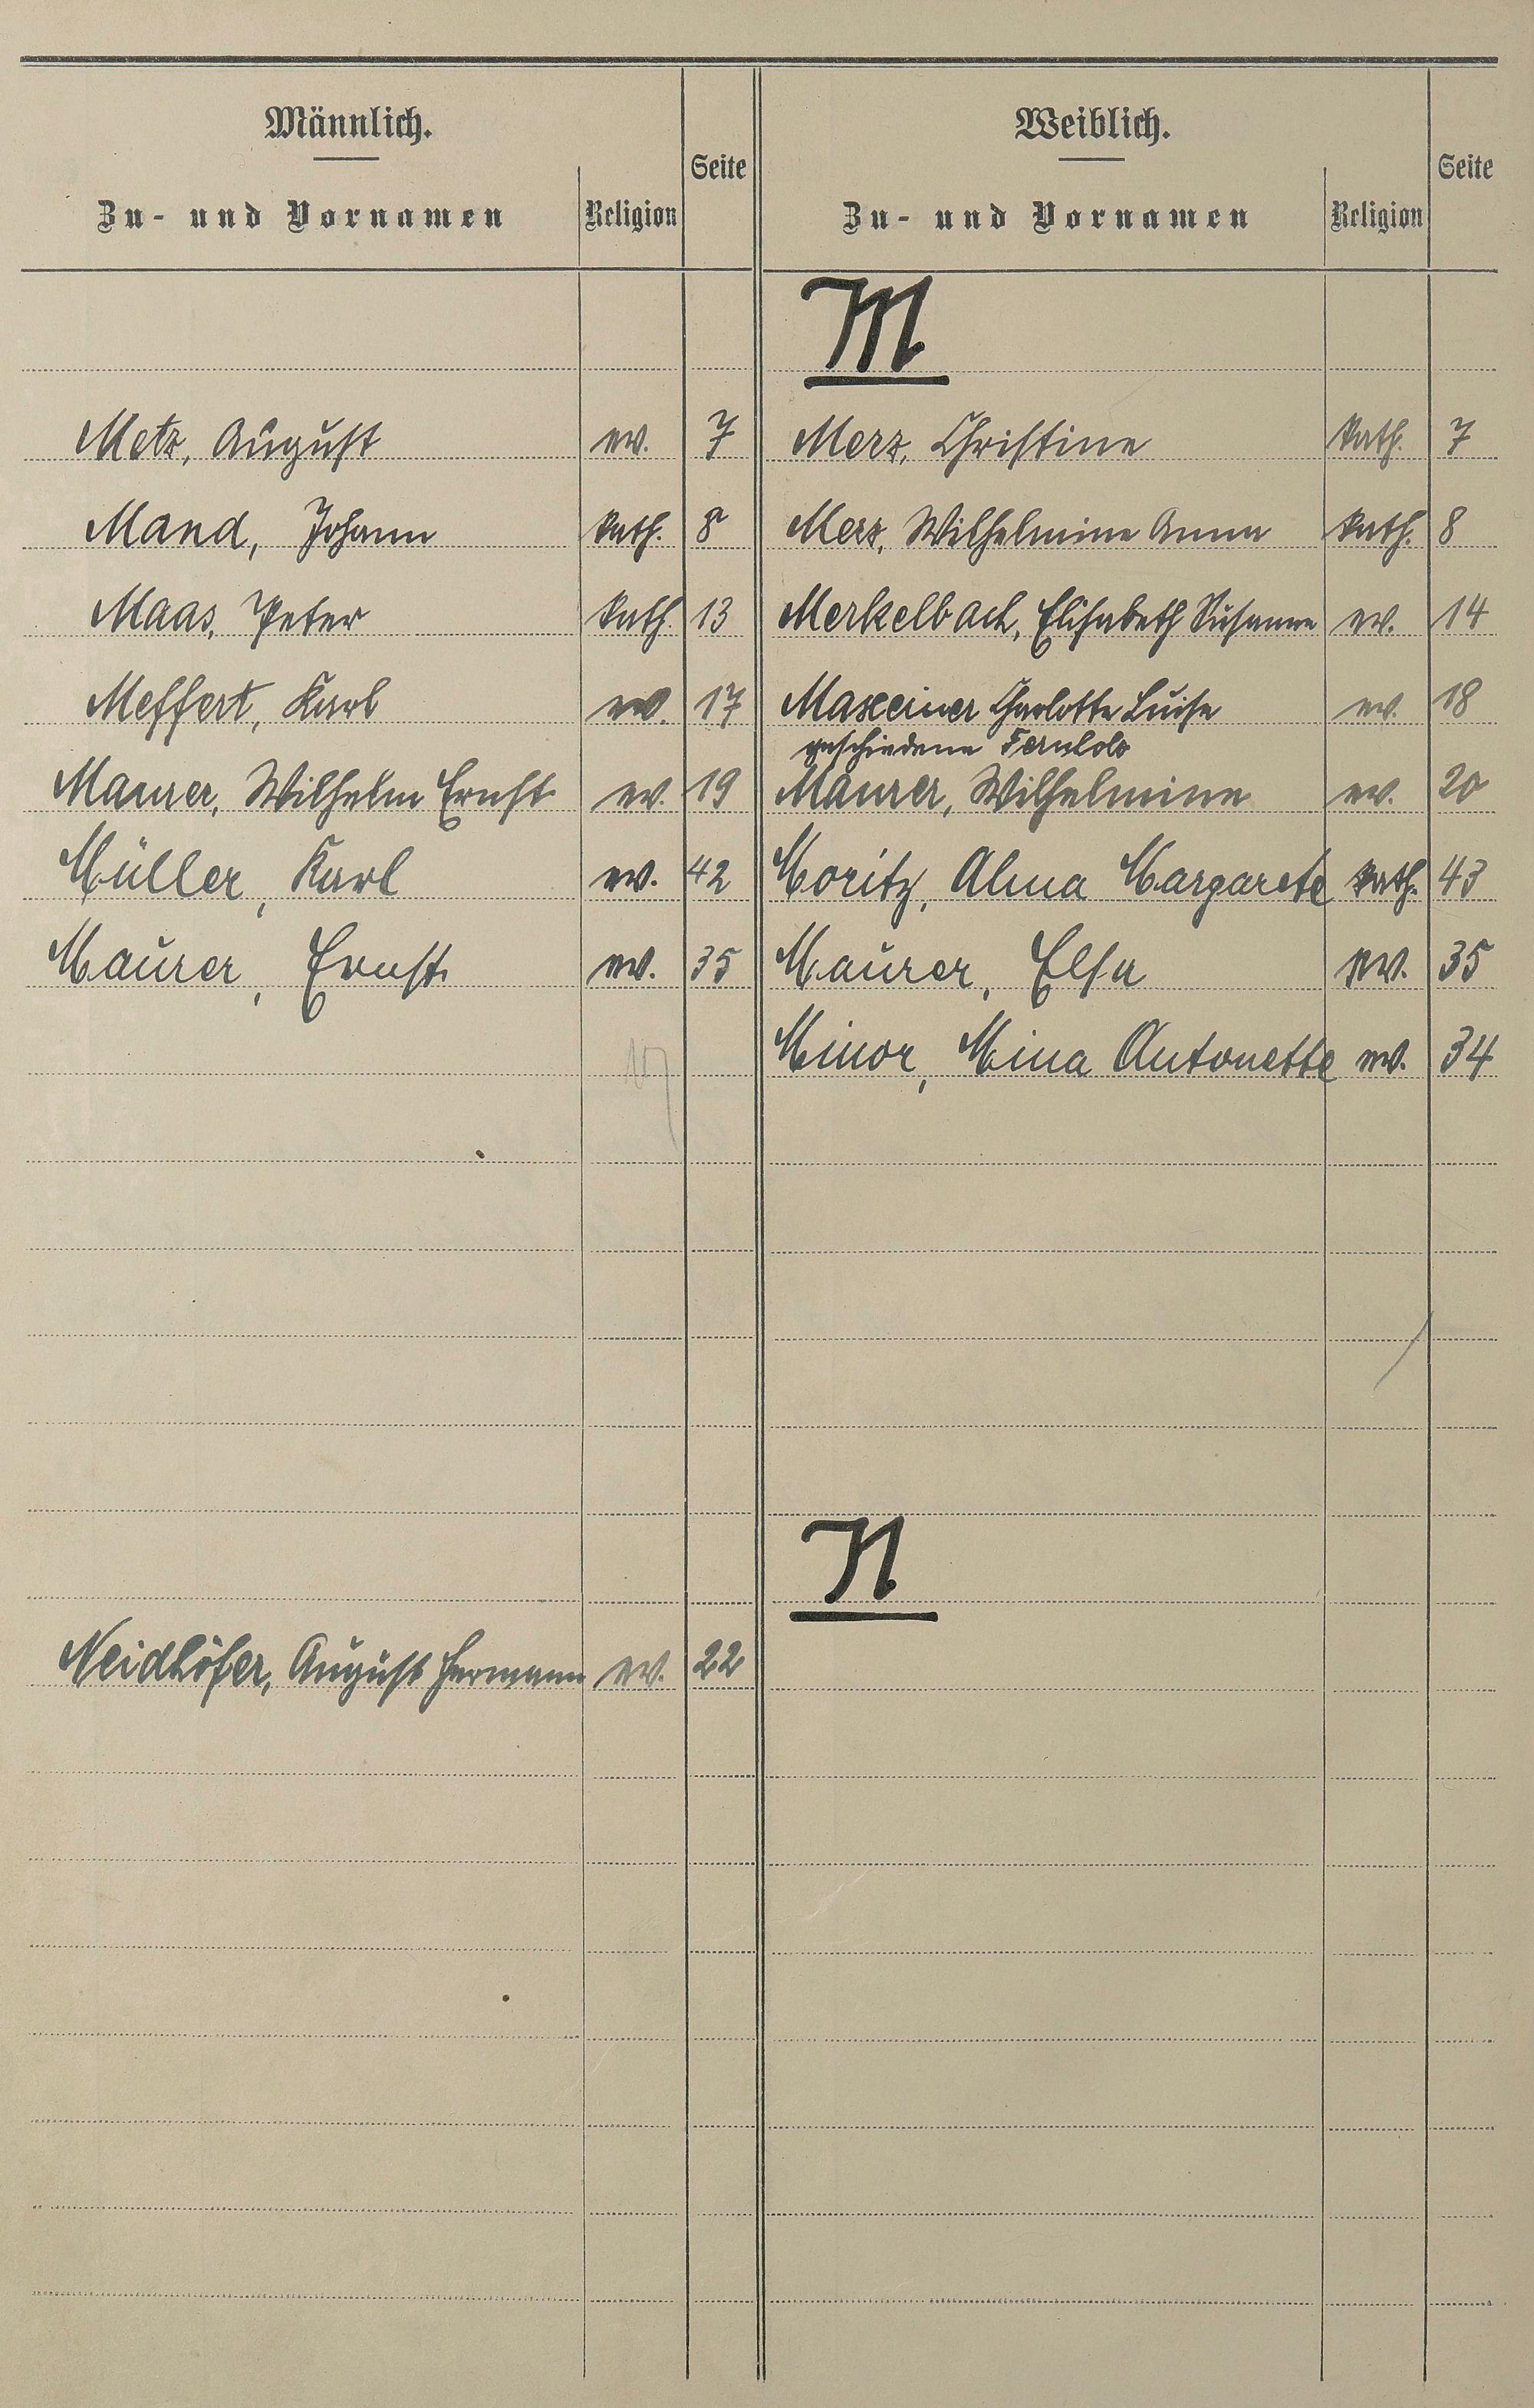 Männlich.
Zu- und Vornamen Religion Seite
Weiblich.
Zu- und Vornamen Religion Seite
M
Metz, August ev. 7 Merz, Christine kath. 7
Mand, Johann kath. 8 Merz, Wilhelmine Anna kath. 8
Maas, Peter kath. 13 Merkelbach, Elisabeth Susanne ev. 14
Meffert, Karl ev. 17 Maxeiner Charlotte Luise ev. 18
geschiedene
Maurer, Wilhelm Ernst ev. 19 Maurer, Wilhelmine ev. 20
Müller, Karl ev. 42 Moritz, Alma Margarete kath. 43
Maurer, Ernst ev. 35 Maurer, Elsa ev. 35
Minor, Mina Antonette ev. 34
N
Neidhöfer, August Hermann ev. 22